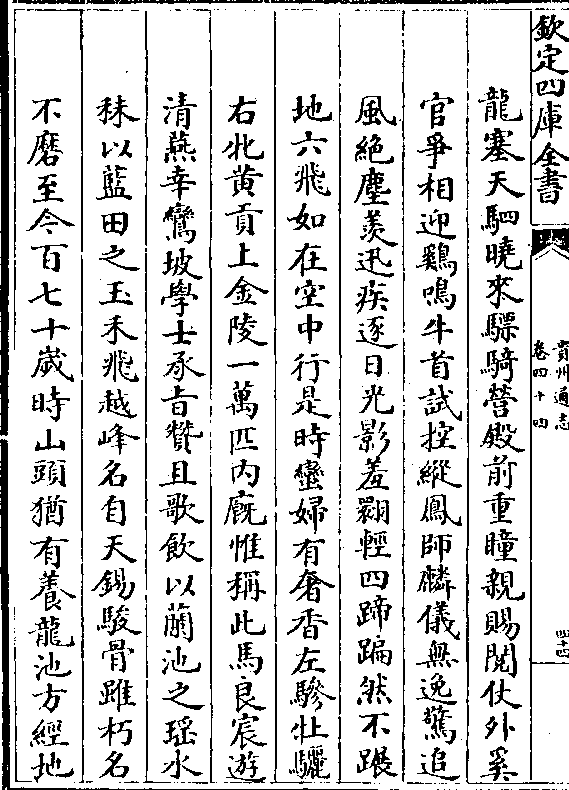 欽定四庫全書
貴州通志
卷四十四
四十四
龍塞天駟曉來驃騎營殿前重瞳親賜閲仗外奚
官爭相迎鷄鳴牛首試控縱鳳師麟儀無逸驚追
風絶塵羨迅疾逐日光影羞翾輕四蹄蹁然不蹍
地六飛如在空中行是時蠻婦有奢香左驂牡驪
右牝黄貢上金陵一萬匹内廐惟稱此馬良宸遊
清燕幸鸞坡學士承旨贊且歌飲以蘭池之瑶水
秣以藍田之玉禾飛越峰名自天錫駿骨雖朽名
不磨至今百七十歲時山頭猶有養龍池方經地